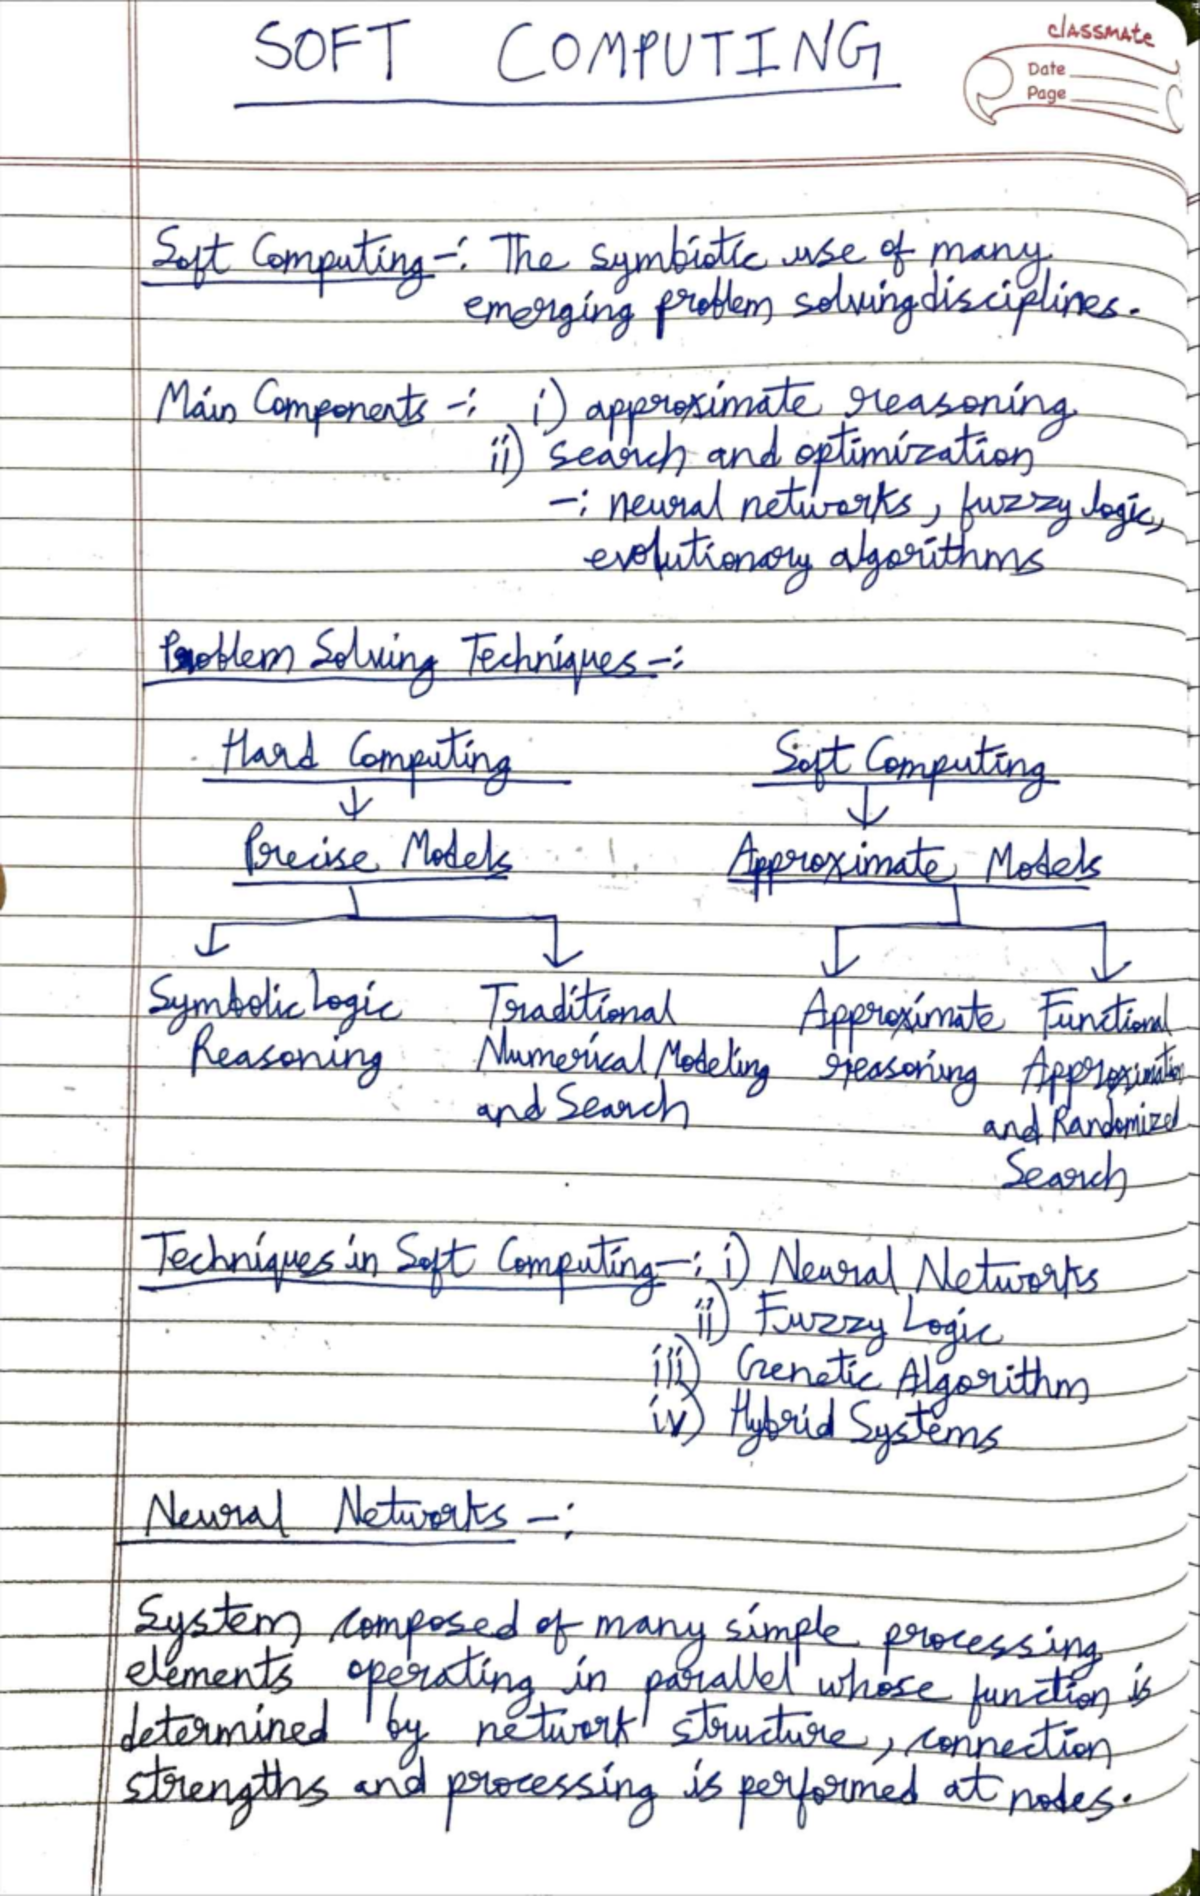 SOFT COMPUTING
classmate
Date
Page
Soft Computing -: The symbiotic use of many
emerging problem solving disciplines.
Main Components -: i) approximate reasoning
ii) search and optimization
-: neural networks, fuzzy logic,
evolutionary algorithms
Problem Solving Techniques -:
Hard Computing Soft Computing
Precise Models Approximate Models
Symbolic Logic Traditional Approximate Functional
Reasoning Numerical Modeling reasoning Approximation
and Search and Randomized
Search
Techniques in Soft Computing -: i) Neural Networks
ii) Fuzzy Logic
iii) Genetic Algorithm
iv) Hybrid Systems
Neural Networks -:
System composed of many simple processing
elements operating in parallel whose function is
determined by network structure, connection
strengths and processing is performed at nodes.